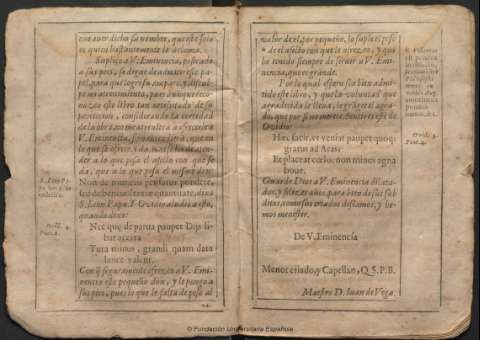 con auer dicho su nombre, que este solo
es quien bastantemente le aclama.
Suplico a V. Eminencia, postrado
a sus pies, se digne de admitir este pa-
pel, para que logre su amparo, y discul-
pe mi atreuimiento, pues aunque reco-
nozco este libro tan necesitado de su
proteccion, considerando la cortedad
de la obra, no me atreuiera a ofrecerla a
V. Eminencia, si
lo que se ofrece, y da, no se ha de aten-
der a lo que pesa el afecto con que se
da, que a lo que pesa el mismo don:
S. Leon Pa-
Non de muneris pensatur pondere,
sed de beneuolentiæ quantitate, dixo
S. Leon Papa. Y Ouidio aludiò a esto,
quando dixo:
Nec que de parua pauper Dijs li-
bat acerra
Tura minus, grandi quam data
lance valent.
Con que seguramente ofrezco a V. Emi-
nencia este pequeño don, y le pongo a
sus pies, pues lo que le falta de peso al
valor de el, por pequeño, lo suple el peso
de el afecto con que le ofrezco, y que
ha tenido siempre de seruir a V. Emi-
nencia, que es grande.
Por lo qual espero sea bien admi-
tido este libro, y que la voluntad que
agradecida le lleua, le grangee el agra-
do, que por si no merece. Sentir es este de
Ouidio:
Hæc facit, vt veniat pauper quoq;
gratus ad Aras;
Et placeat cælo, non minus agna
boue.
Guarde Dios a V. Eminencia dilata-
dos, y felizes años, para bien de sus sub-
ditos, como sus criados deseamos, y he-
mos menester.
De V. Eminencia
Menor criado, y Capellan, Q. S. P. B.
Maestro D. Iuan de Vega.
© Fundación Universitaria Española